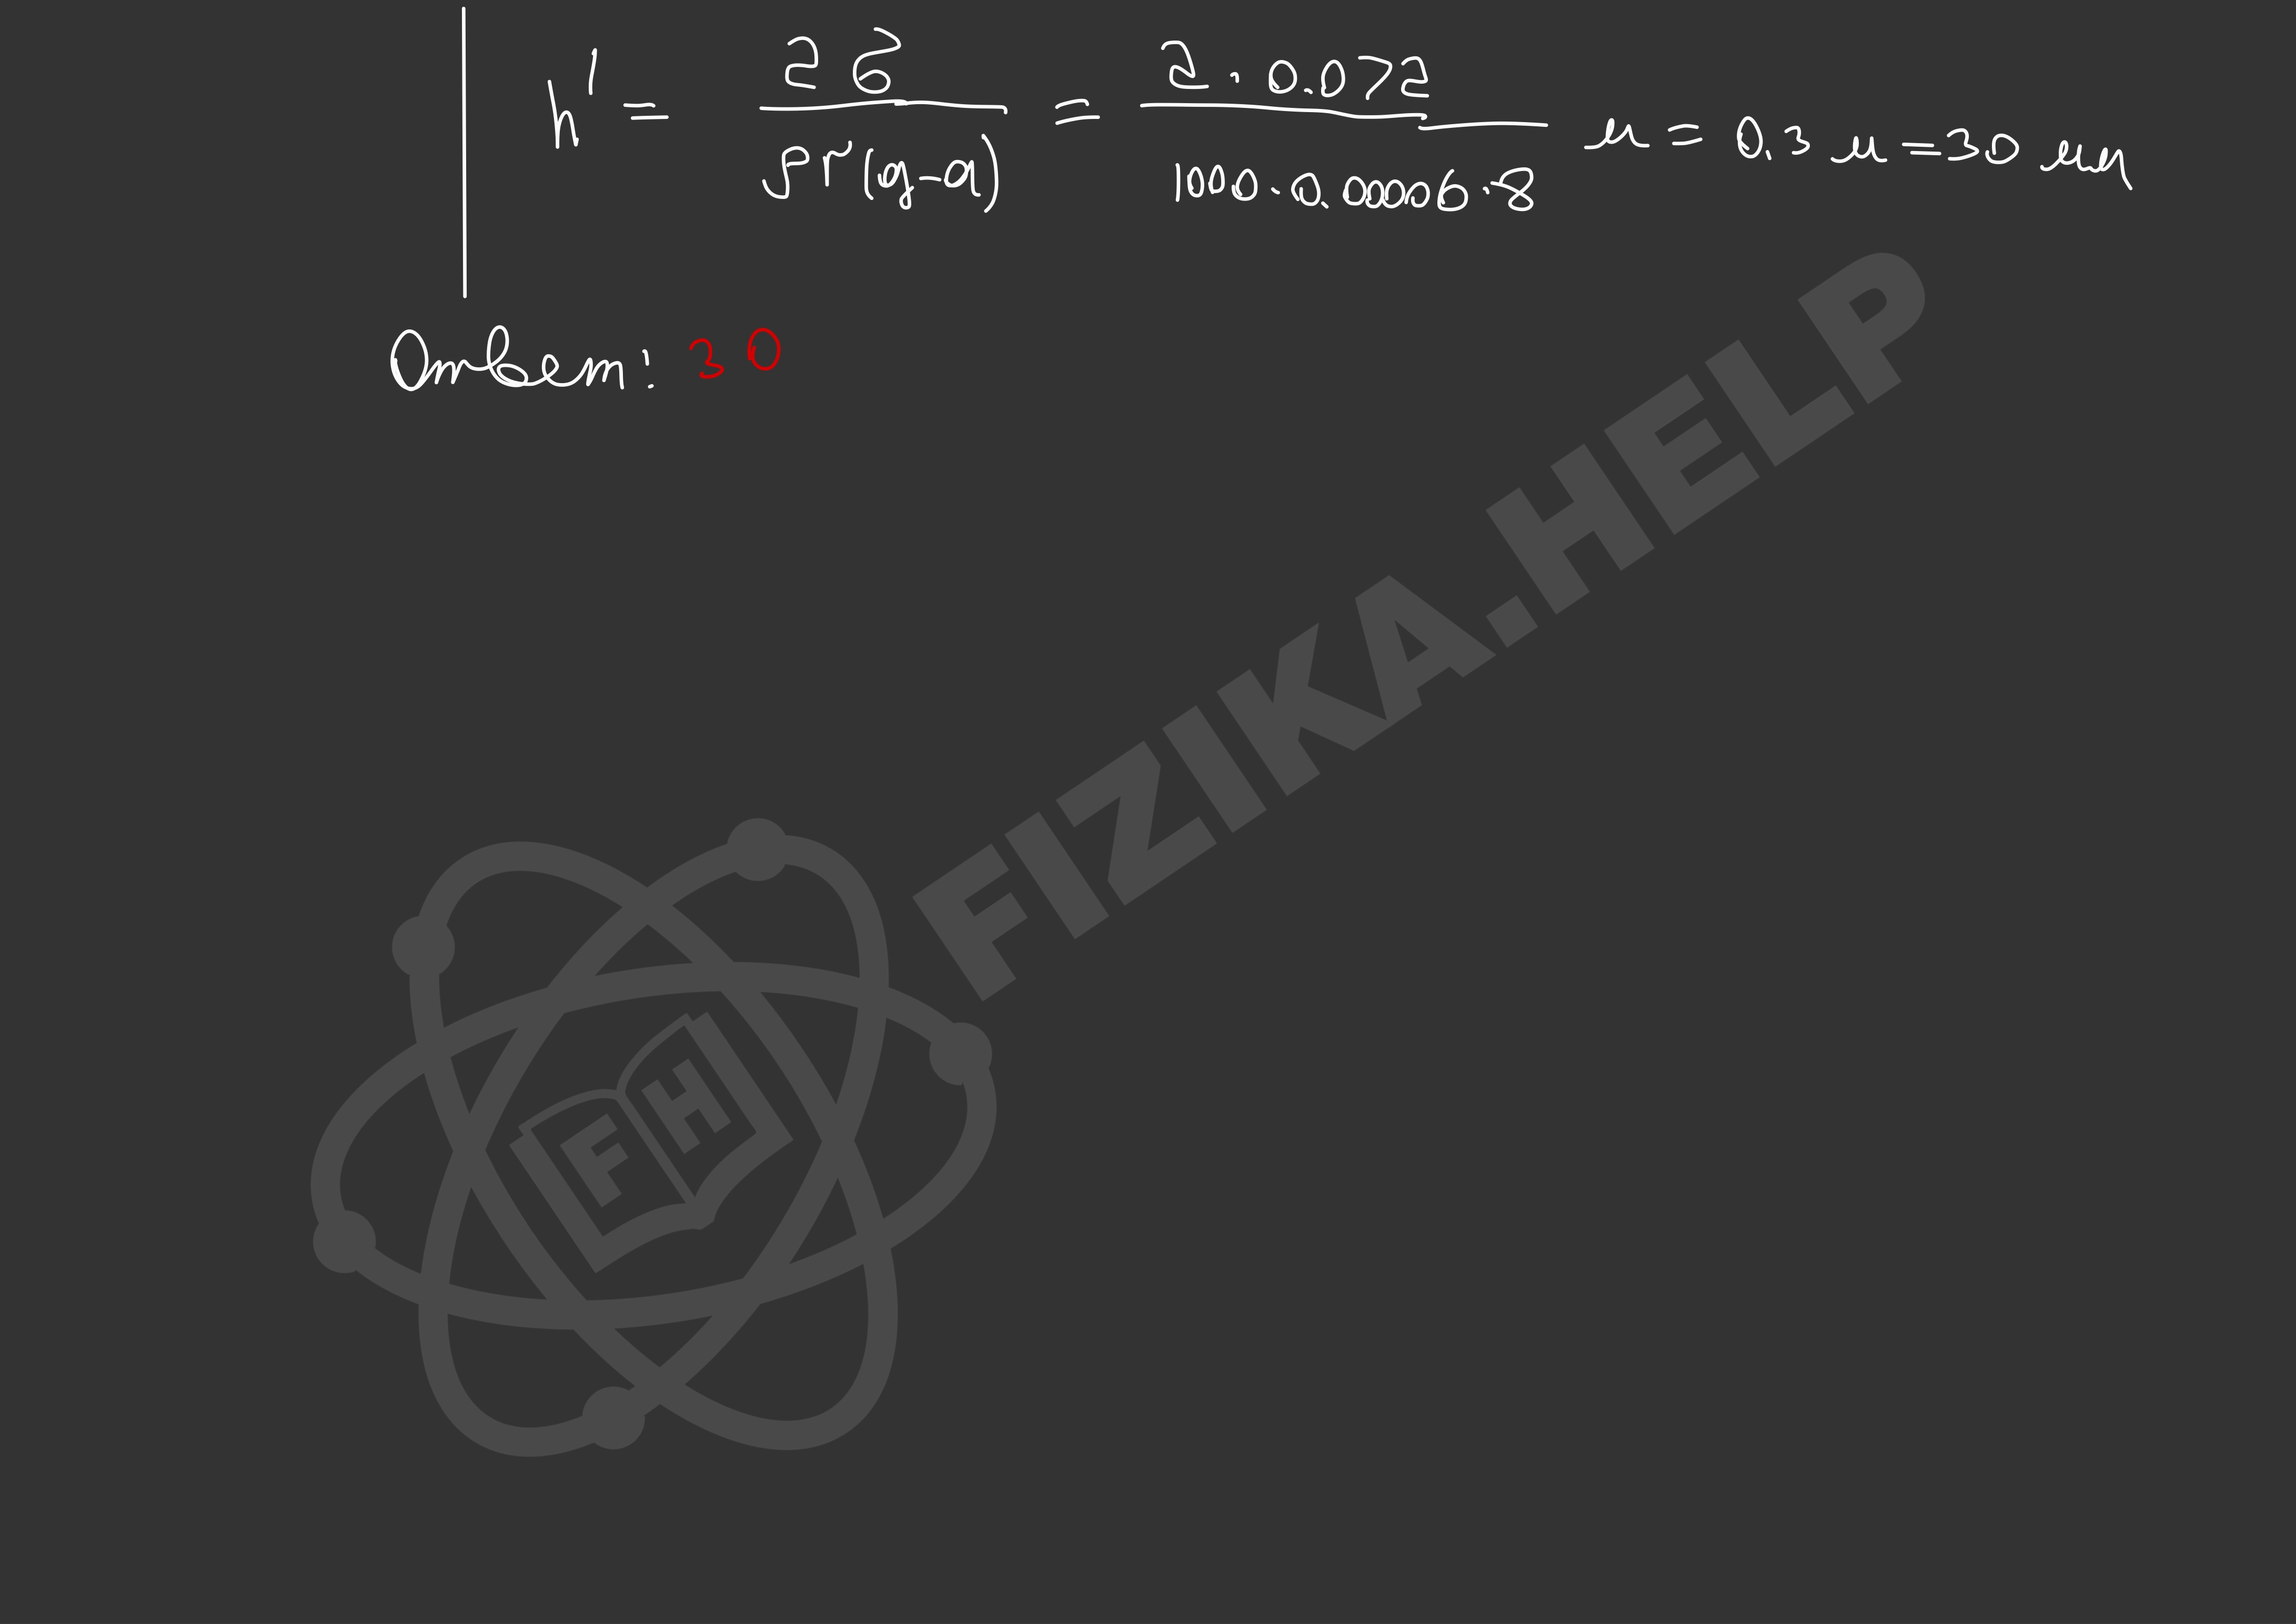 h' = 2σ / ρr(g-a) = 2·0.072 / 1000·0.00006·8 м = 0.3 м = 30 см
Ответ: 30
FIZIKA.HELP
F H